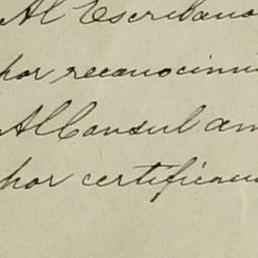 Al Escribano
por reconocimi
Al Consul am
por certificaci